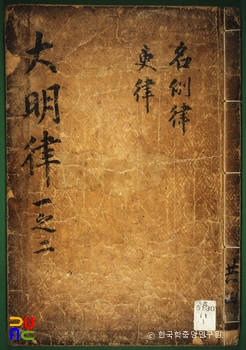 名例律
吏律
大明律 一之二
共四
ⓒ 한국학중앙연구원